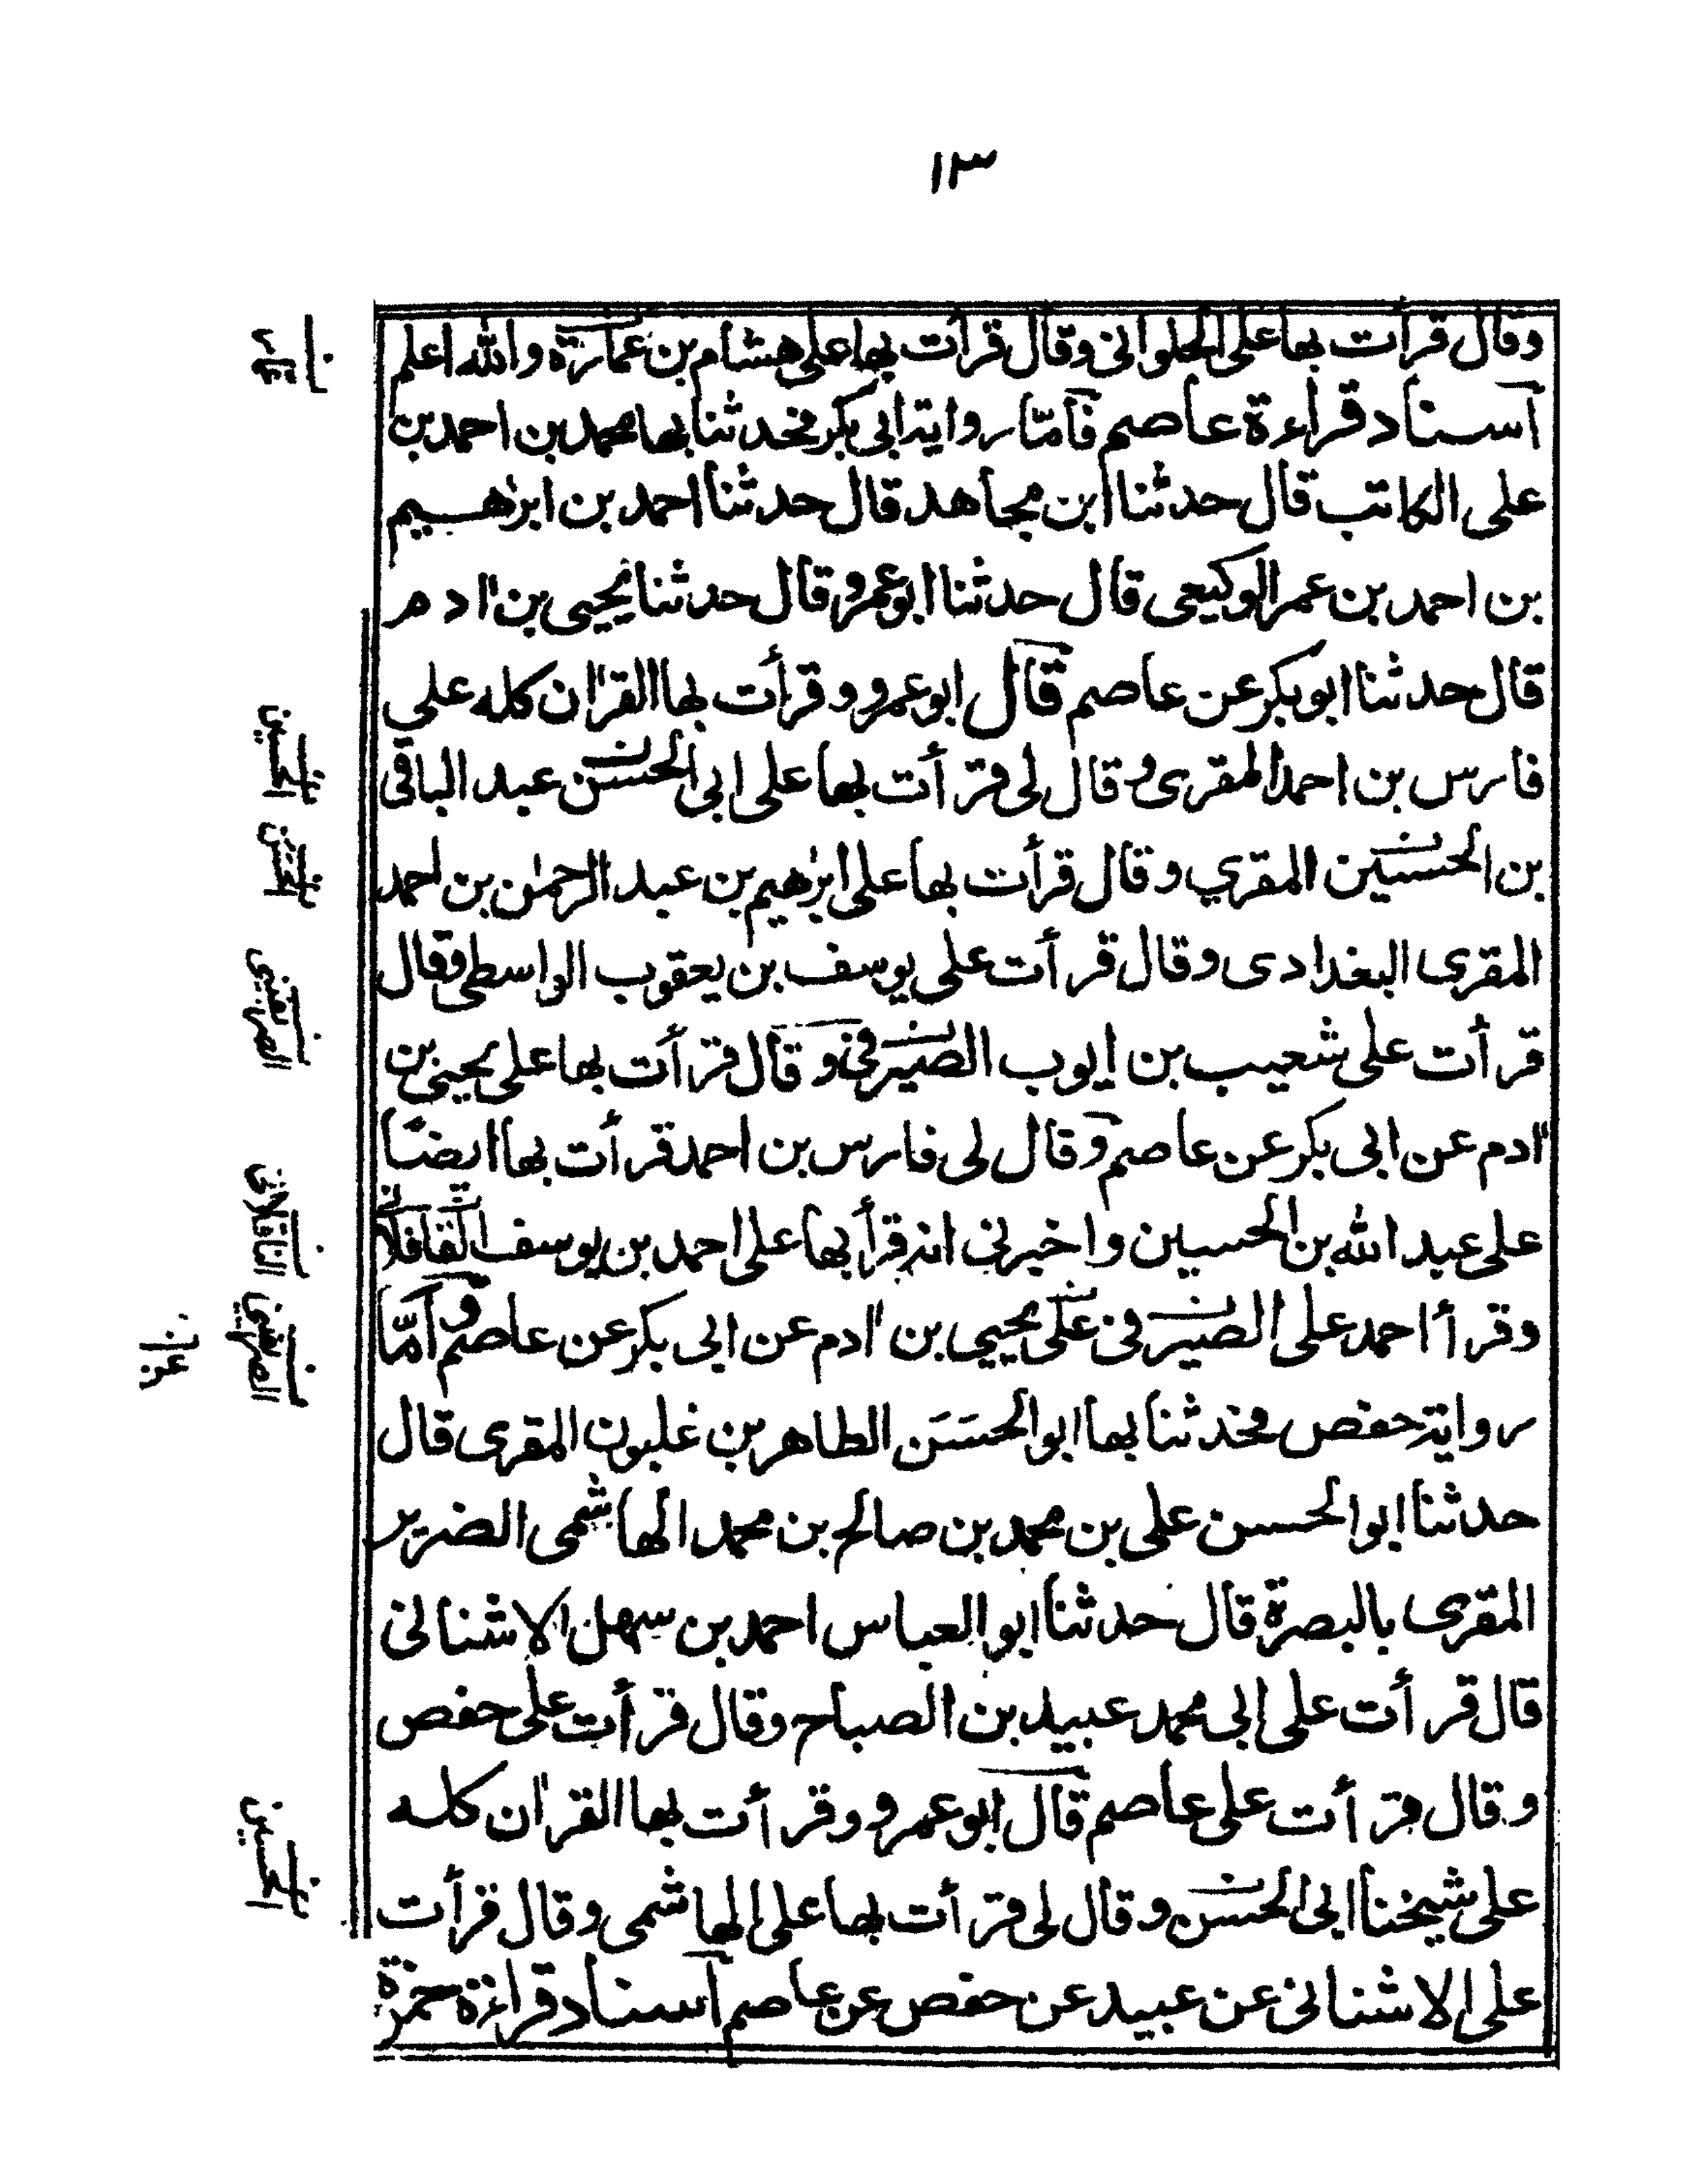 ١٣
وقال قرأت بها على الحلوانى وقال قرأت بها على هشام بن عمارة والله اعلم
آسناد قراءة عاصم فآمّا رواية ابى بكر فحدثنا بها محمد بن احمد بن
على الكاتب قال حدثنا ابن مجاهد قال حدثنا احمد بن ابرٰهيم
بن احمد بن عمر الوكيعى قال حدثنا ابو عمرو قال حدثنا يحيى بن اٰدم
قال حدثنا ابو بكر عن عاصم قآل ابو عمرو وقرأت بها القرٰان كله على
فارس بن احمد المقرى وقال لى قرأت بها على ابى الحسن عبد الباقى
بن الحسين المقري وقال قرأت بها على ابرٰهيم بن عبد الرحمٰن بن احمد
المقرى البغدادى وقال قرأت على يوسف بن يعقوب الواسطى وقال
قرأت على شعيب بن ايوب الصيرفى وقال قرأت بها على يحيى بن
اٰدم عن ابى بكر عن عاصم وٓقال لى فارس بن احمد قرأت بها ايضًا
على عبد الله بن الحسين واخبرنى انه قرأ بها على احمد بن يوسف القافلانى
وقرأ احمد على الصيرفى على يحيى بن اٰدم عن ابى بكر عن عاصم وآمّا
رواية حفص فحدثنا بها ابو الحسَن الطاهر بن غلبون المقرى قال
حدثنا ابو الحسن على بن محمد بن صالح بن محمد الهاشمى الضرير
المقرى بالبصرة قال حدثنا ابو العباس احمد بن سهل الاشنانى
قال قرأت على ابى محمد عبيد بن الصباح وقال قرأت على حفص
وقال قرأت على عاصم قآل ابو عمرو وقرأت بها القرٰان كله
على شيخنا ابى الحسن وقال لى قرأت بها على الهاشمى وقال قرأت
على الاشنانى عن عبيد عن حفص عن عاصم آسناد قراءة حمزة
الحسين
الحسن
الحسين